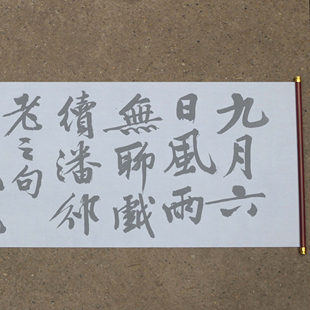 九月六
日風雨
無聊戲
續潘邠
老之句